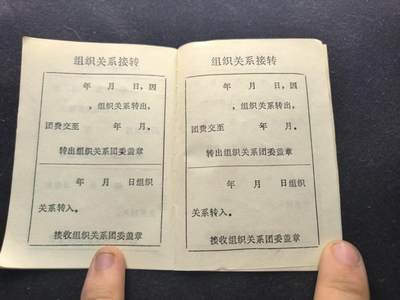 组织关系接转
年 月 日，因
，组织关系转出，
团费交至 年 月。
转出组织关系团委盖章
年 月 日组织
关系转入。
接收组织关系团委盖章
组织关系接转
年 月 日，因
，组织关系转出，
团费交至 年 月。
转出组织关系团委盖章
年 月 日组织
关系转入。
接收组织关系团委盖章